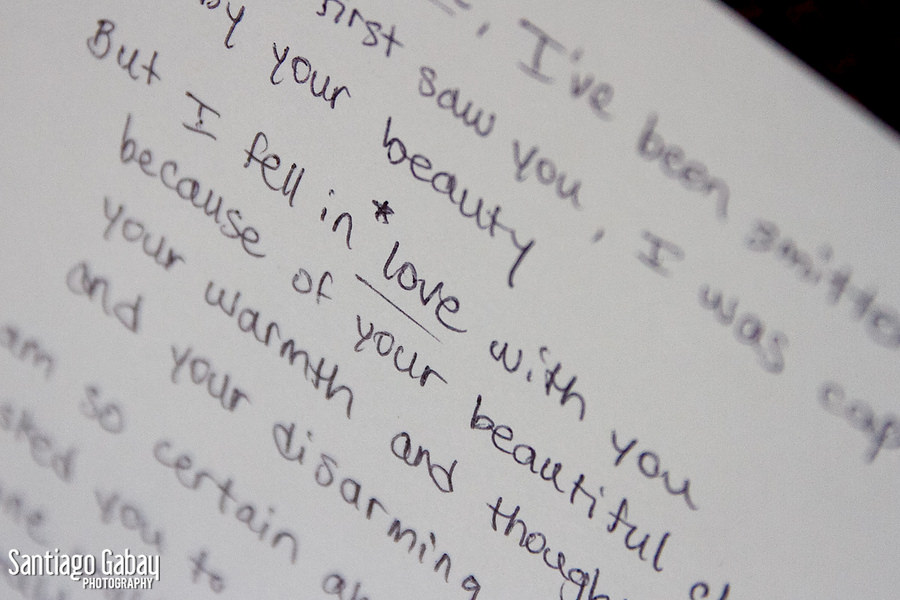 , I've been smitte
first saw you, I was cap
by your beauty
But I fell in *love with you
because of your beautiful
your warmth and though
and your disarming
am so certain
sked you to
Santiago Gabay
PHOTOGRAPHY